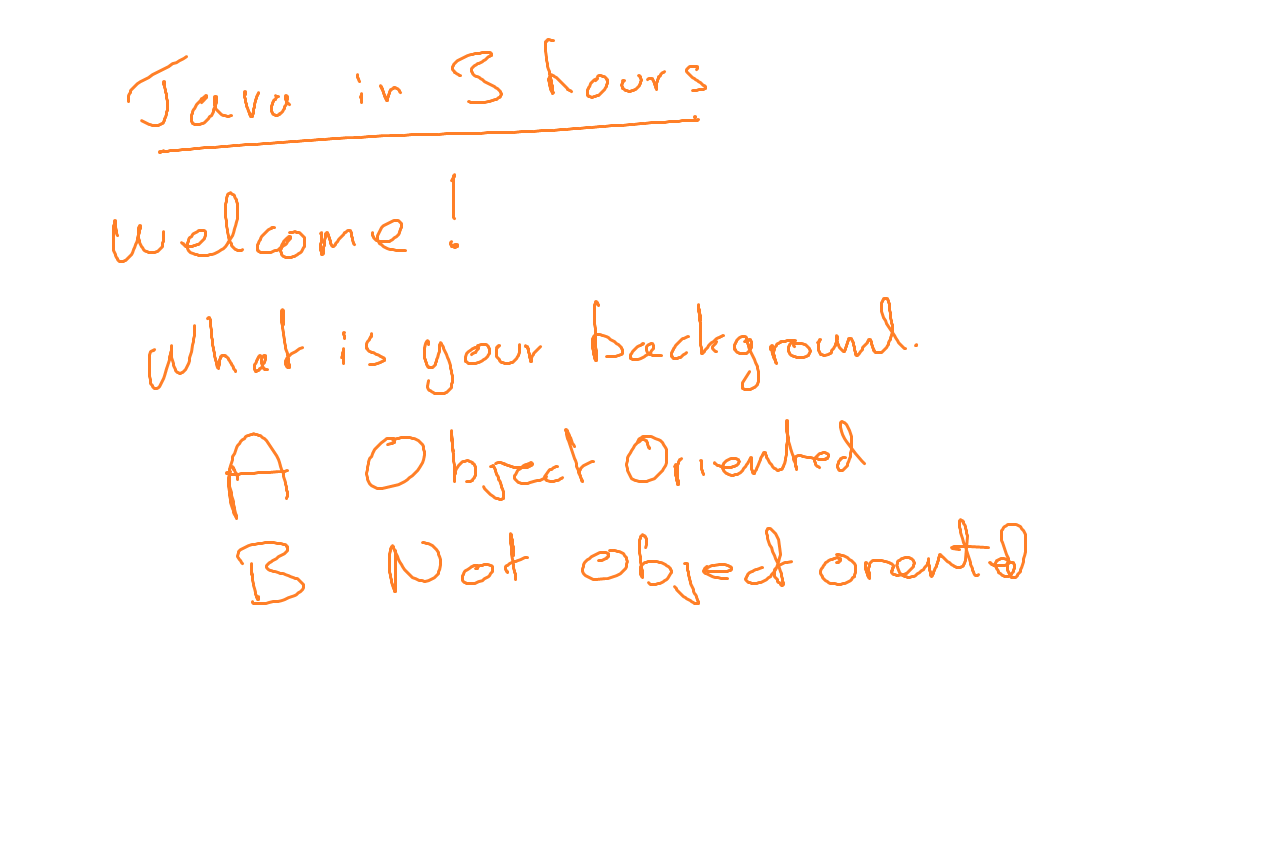 Java in 3 hours
Welcome!
What is your background.
A Object Oriented
B Not Object oriented